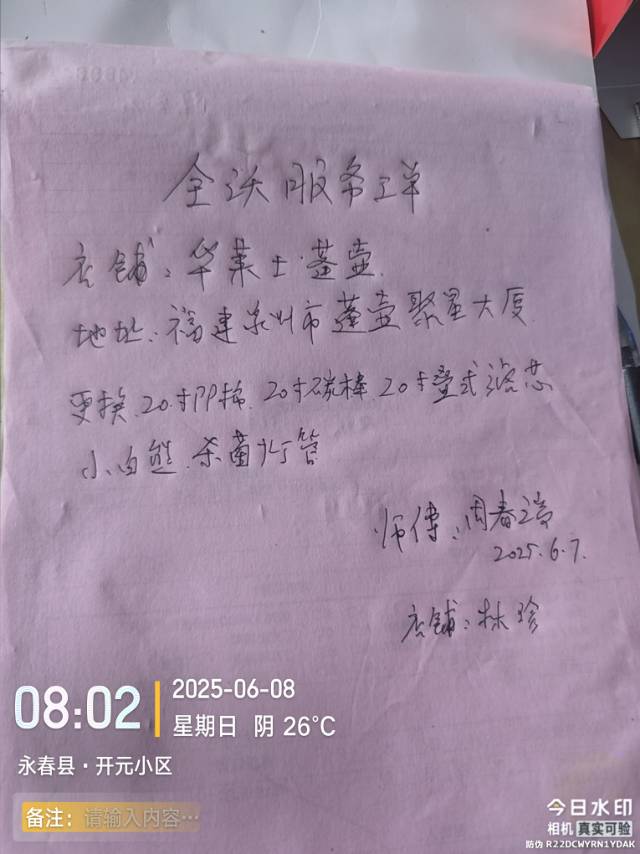 全沃服务单
店铺：华莱士·蓬壶
地址：福建泉州市蓬壶聚星大厦
更换 20寸PP棉 20寸碳棒 20寸叠式滤芯
小白熊 杀菌灯管
师傅：周春
2025.6.7.
店铺：林珍
08:02
2025-06-08
星期日 阴 26°C
永春县·开元小区
备注：请输入内容…
今日水印
相机 真实可验
防伪 R22DCWYRN1YDAK